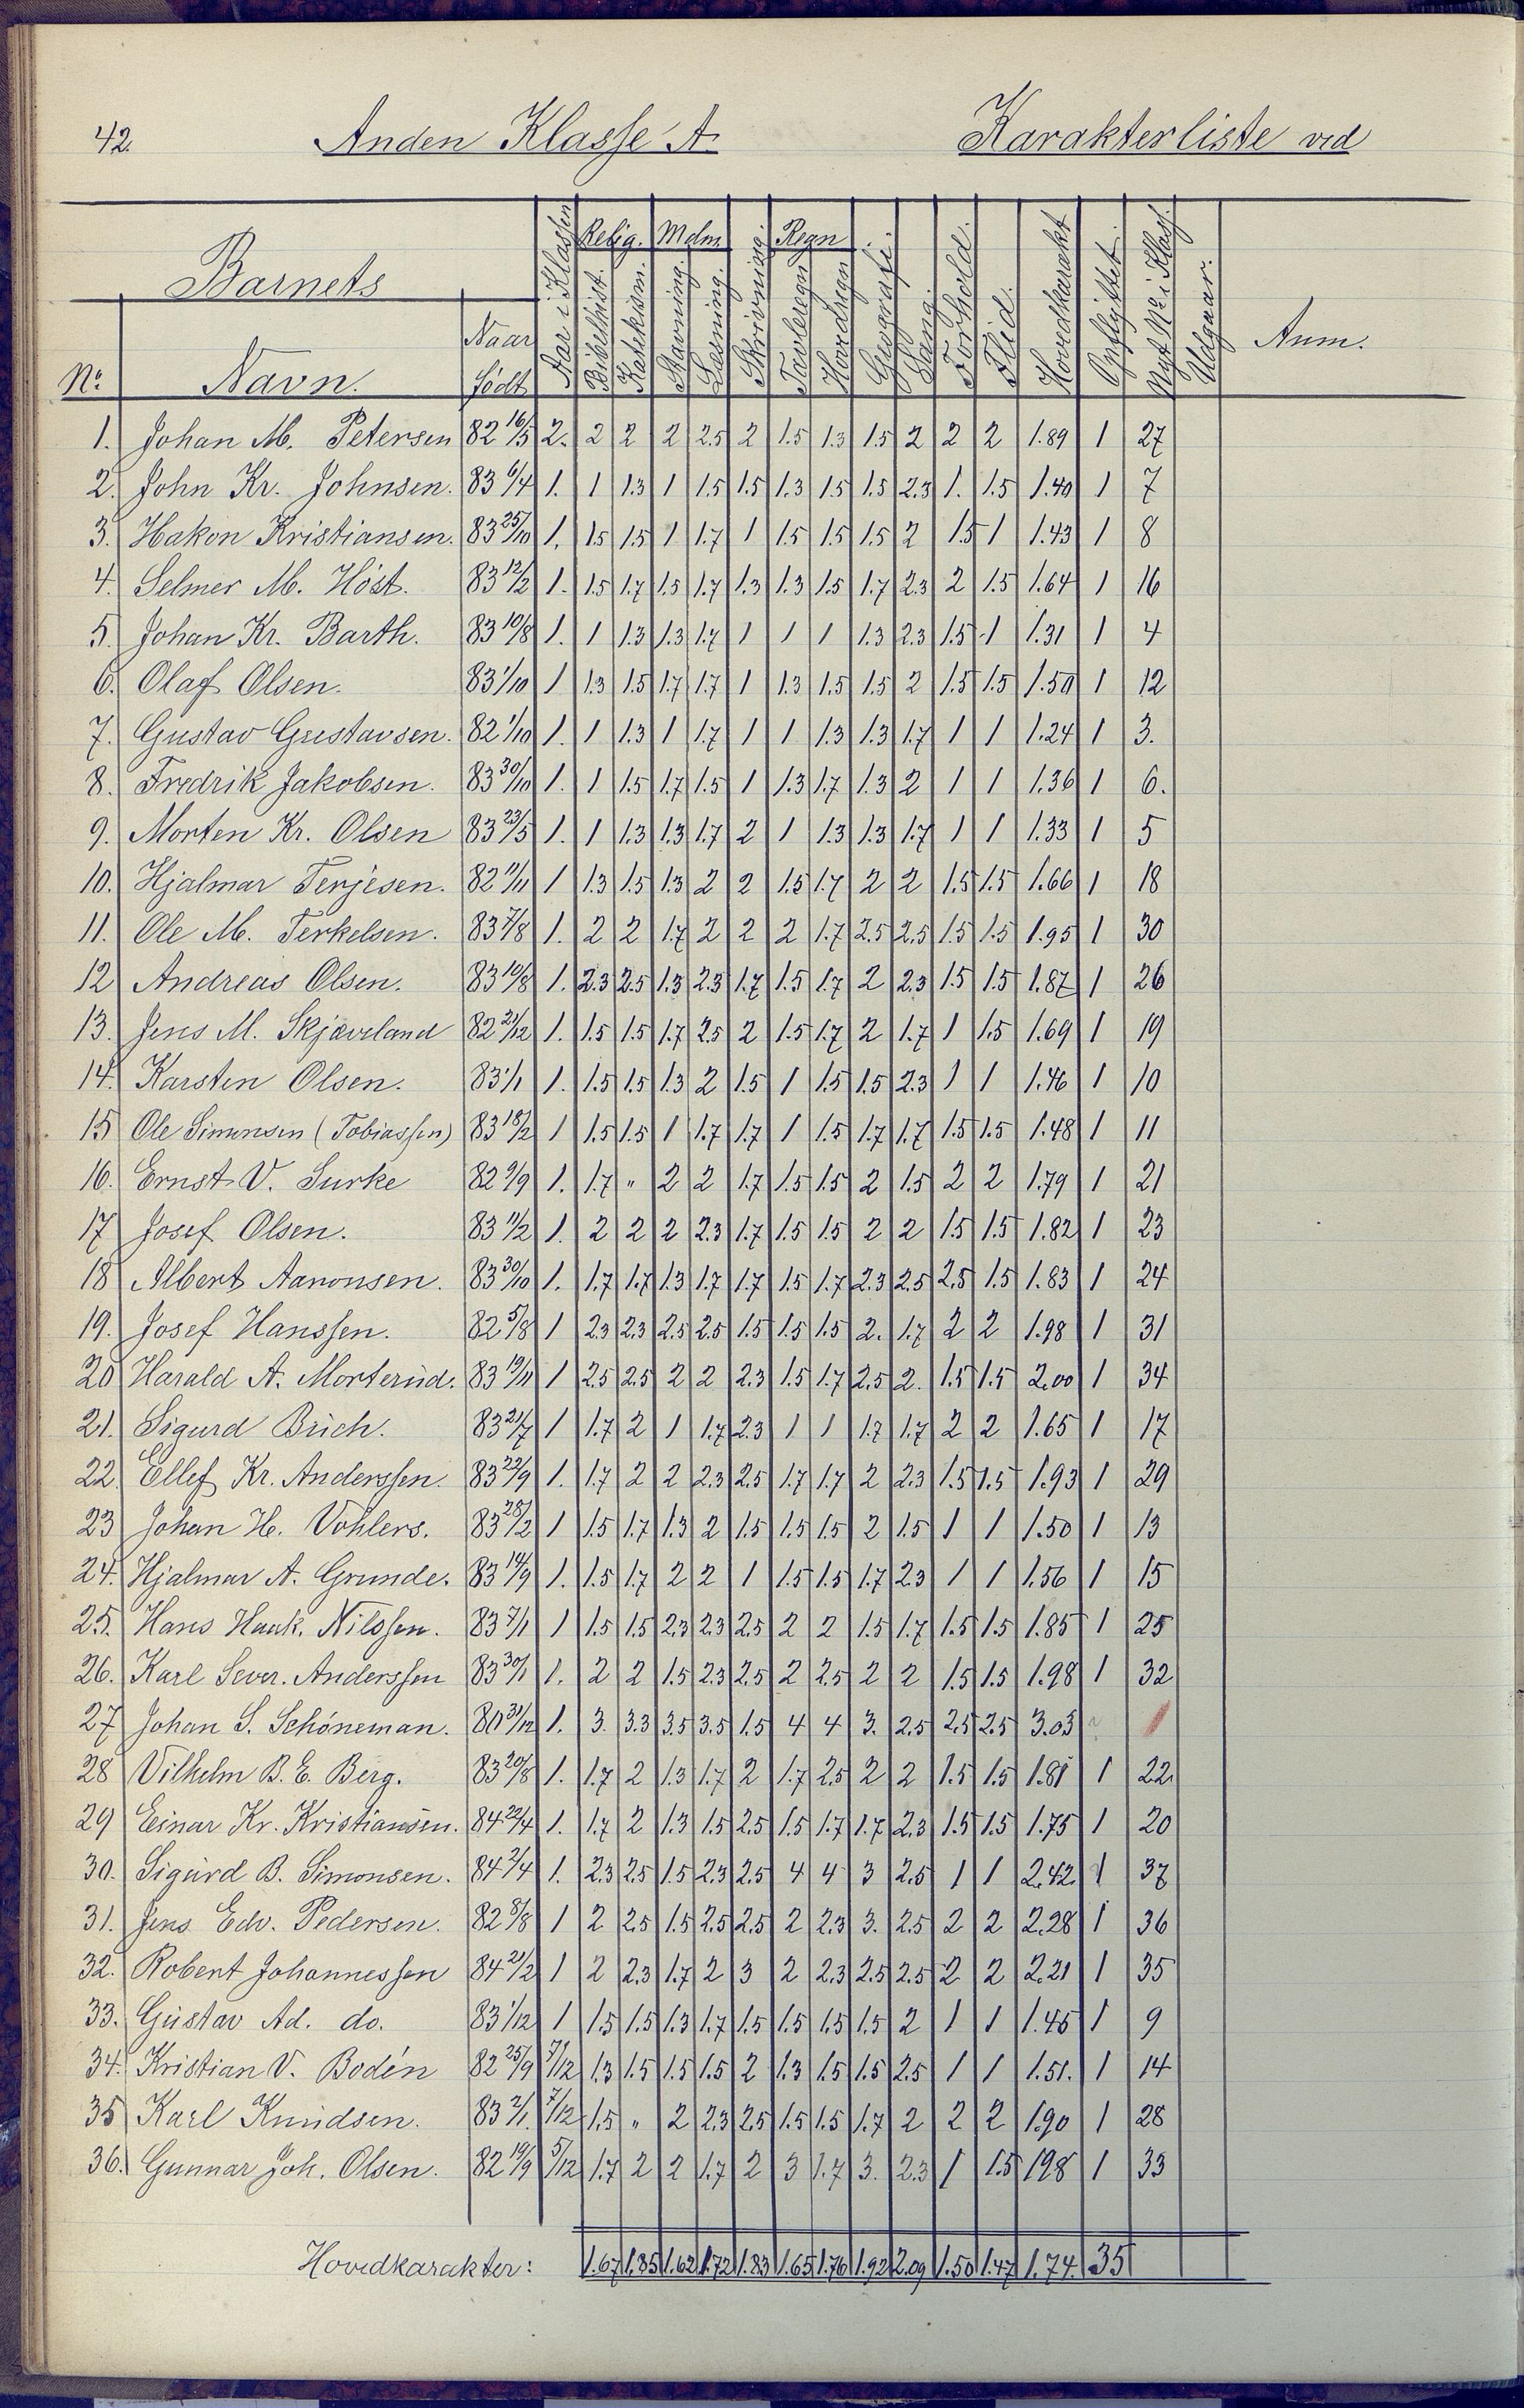 42. Anden Klasse A. Karakterliste ved
Barnets Aar i Klassen Relig. Mdm. Skrivning. Regn Geografi. Sang. Forhold. Flid. Hovedkarakt Opflyttet. Nyt No i Klass. Udgaar. Anm.
No Navn. Naar født Bibelhist. Katekism. Stavning. Læsning. Tavleregn Hovedregn
1. Johan M. Petersen 82 16/5 2. 2 2 2 2.5 2 1.5 1.3 1.5 2 2 2 1.89 1 27
2. John Kr. Johnsen. 83 6/4 1. 1 1.3 1 1.5 1.5 1.3 1.5 1.5 2.3 1. 1.5 1.40 1 7
3. Hakon Kristiansen. 83 25/10 1. 1.5 1.5 1 1.7 1 1.5 1.5 1.5 2 1.5 1 1.43 1 8
4. Selmer M. Höst. 83 12/2 1. 1.5 1.7 1.5 1.7 1.3 1.3 1.5 1.7 2.3 2 1.5 1.64 1 16
5. Johan Kr. Barth. 83 10/8 1. 1 1.3 1.3 1.7 1 1 1 1.3 2.3 1.5 1 1.31 1 4
6. Olaf Olsen. 83 1/10 1 1.3 1.5 1.7 1.7 1 1.3 1.5 1.5 2 1.5 1.5 1.50 1 12
7. Gustav Gustavsen. 82 1/10 1. 1 1.3 1 1.7 1 1 1.3 1.3 1.7 1 1 1.24 1 3.
8. Fredrik Jakobsen. 83 30/10 1. 1 1.5 1.7 1.5 1 1.3 1.7 1.3 2 1 1 1.36 1 6.
9. Morten Kr. Olsen 83 23/5 1. 1 1.3 1.3 1.7 2 1 1.3 1.3 1.7 1 1 1.33 1 5
10. Hjalmar Terjesen. 82 11/11 1 1.3 1.5 1.3 2 2 1.5 1.7 2 2 1.5 1.5 1.66 1 18
11. Ole M. Terkelsen. 83 7/8 1. 2 2 1.7 2 2 2 1.7 2.5 2.5 1.5 1.5 1.95 1 30
12 Andreas Olsen. 83 10/8 1. 2.3 2.5 1.3 2.3 1.7 1.5 1.7 2 2.3 1.5 1.5 1.87 1 26
13. Jens M. Skjæveland 82 21/12 1. 1.5 1.5 1.7 2.5 2 1.5 1.7 2 1.7 1 1.5 1.69 1 19
14. Karsten Olsen. 83 1/1 1. 1.5 1.5 1.3 2 1.5 1 1.5 1.5 2.3 1 1 1.46 1 10
15 Ole Simonsen (Tobiassen) 83 18/2 1 1.5 1.5 1 1.7 1.7 1 1.5 1.7 1.7 1.5 1.5 1.48 1 11
16. Ernst V. Surke 82 9/9 1. 1.7 " 2 2 1.7 1.5 1.5 2 1.5 2 2 1.79 1 21
17 Josef Olsen. 83 11/2 1. 2 2 2 2.3 1.7 1.5 1.5 2 2 1.5 1.5 1.82 1 23
18 Albert Aanonsen. 83 30/10 1. 1.7 1.7 1.3 1.7 1.7 1.5 1.7 2.3 2.5 2.5 1.5 1.83 1 24
19. Josef Hanssen. 82 5/8 1 2.3 2.3 2.5 2.5 1.5 1.5 1.5 2. 1.7 2 2 1.98 1 31
20 Harald A. Morterud. 83 19/11 1 2.5 2.5 2 2 2.3 1.5 1.7 2.5 2. 1.5 1.5 2.00 1 34
21. Sigurd Buch. 83 21/7 1 1.7 2 1 1.7 2.3 1 1 1.7 1.7 2 2 1.65 1 17
22. Ellef Kr. Anderssen. 83 23/9 1. 1.7 2 2 2.3 2.5 1.7 1.7 2 2.3 1.5 1.5 1.93 1 29
23 Johan H. Vohlers. 83 28/2 1 1.5 1.7 1.3 2 1.5 1.5 1.5 2 1.5 1 1 1.50 1 13
24. Hjalmar A. Grunde. 83 14/9 1. 1.5 1.7 2 2 1 1.5 1.5 1.7 2.3 1 1 1.56 1 15
25. Hans Hauk. Nilssen. 83 7/1 1 1.5 1.5 2.3 2.3 2.5 2 2 1.5 1.7 1.5 1.5 1.85 1 25
26. Karl Sever. Anderssen 83 30/1 1. 2 2 1.5 2.3 2.5 2 2.5 2 2 1.5 1.5 1.98 1 32
27 Johan S. Schöneman. 80 31/12 1. 3. 3.3 3.5 3.5 1.5 4 4 3. 2.5 2.5 2.5 3.03
28 Vilhelm B. E. Berg. 83 20/8 1. 1.7 2 1.3 1.7 2 1.7 2.5 2 2 1.5 1.5 1.81 1 22.
29 Einar Kr. Kristiansen. 84 22/4 1. 1.7 2 1.3 1.5 2.5 1.5 1.7 1.7 2.3 1.5 1.5 1.75 1 20
30. Sigurd B. Simonsen. 84 2/4 1. 2.3 2.5 1.5 2.3 2.5 4 4 3 2.5 1 1 2.42. 1 37
31. Jens Edv. Pedersen. 82 8/8 1 2 2.5 1.5 2.5 2.5 2 2.3 3. 2.5 2 2 2.28 1 36
32. Robert Johannessen 84 21/2 1 2 2.3 1.7 2 3 2 2.3 2.5 2.5 2 2 2.21 1 35
33. Gustav Ad. do. 83 1/12 1 1.5 1.5 1.3 1.7 1.5 1.5 1.5 1.5 2 1 1 1.45 1 9
34. Kristian V. Bodén 82 25/9 7/12 1.3 1.5 1.5 1.5 2 1.3 1.5 1.5 2.5 1 1 1.51. 1 14
35 Karl Knudsen. 83 2/1. 7/12 1.5 " 2 2.3 2.5 1.5 1.5 1.7 2 2 2 1.90 1 28
36. Gunnar Joh. Olsen. 82 19/9 5/12 1.7 2 2 1.7 2 3 1.7 3. 2.3 1 1.5 1.98 1 33
Hovedkarakter: 1.67 1.85 1.62 1.72 1.83 1.65 1.76 1.92 2.09 1.50 1.47 1.74. 35